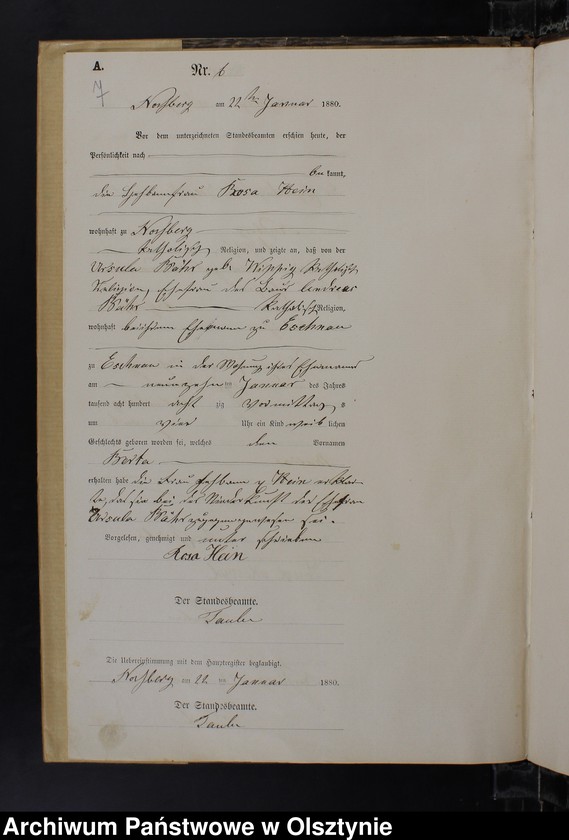 A.
7
Nr. 6
am 22ten Januar 1880.
Vor dem unterzeichneten Standesbeamten erschien heute, der
Persönlichkeit nach
bekannt,
die Hebammfrau Rosa Hein
wohnhaft zu
katholischer Religion, und zeigte an, daß von der
Ursula Bähr geb. katholischer
Religion, Ehefrau des Andreas
Bähr katholischer Religion,
wohnhaft bei ihrem Ehemann zu Eschnau
zu Eschnau in der Wohnung ihres Ehemannes
am neunzehn ten Januar des Jahres
tausend acht hundert acht zig Vormittags
um vier Uhr ein Kind weib lichen
Geschlechts geboren worden sei, welches den Vornamen
Berta
erhalten habe die Frau Hebamm Hein erklär-
te, daß sie bei der Niederkunft der Ehefrau
Ursula Bähr zugegen gewesen sei.
Vorgelesen, genehmigt und unterschrieben
Rosa Hein
Der Standesbeamte.
Die Uebereinstimmung mit dem Hauptregister beglaubigt.
am 22 ten Januar 1880.
Der Standesbeamte.
Archiwum Państwowe w Olsztynie